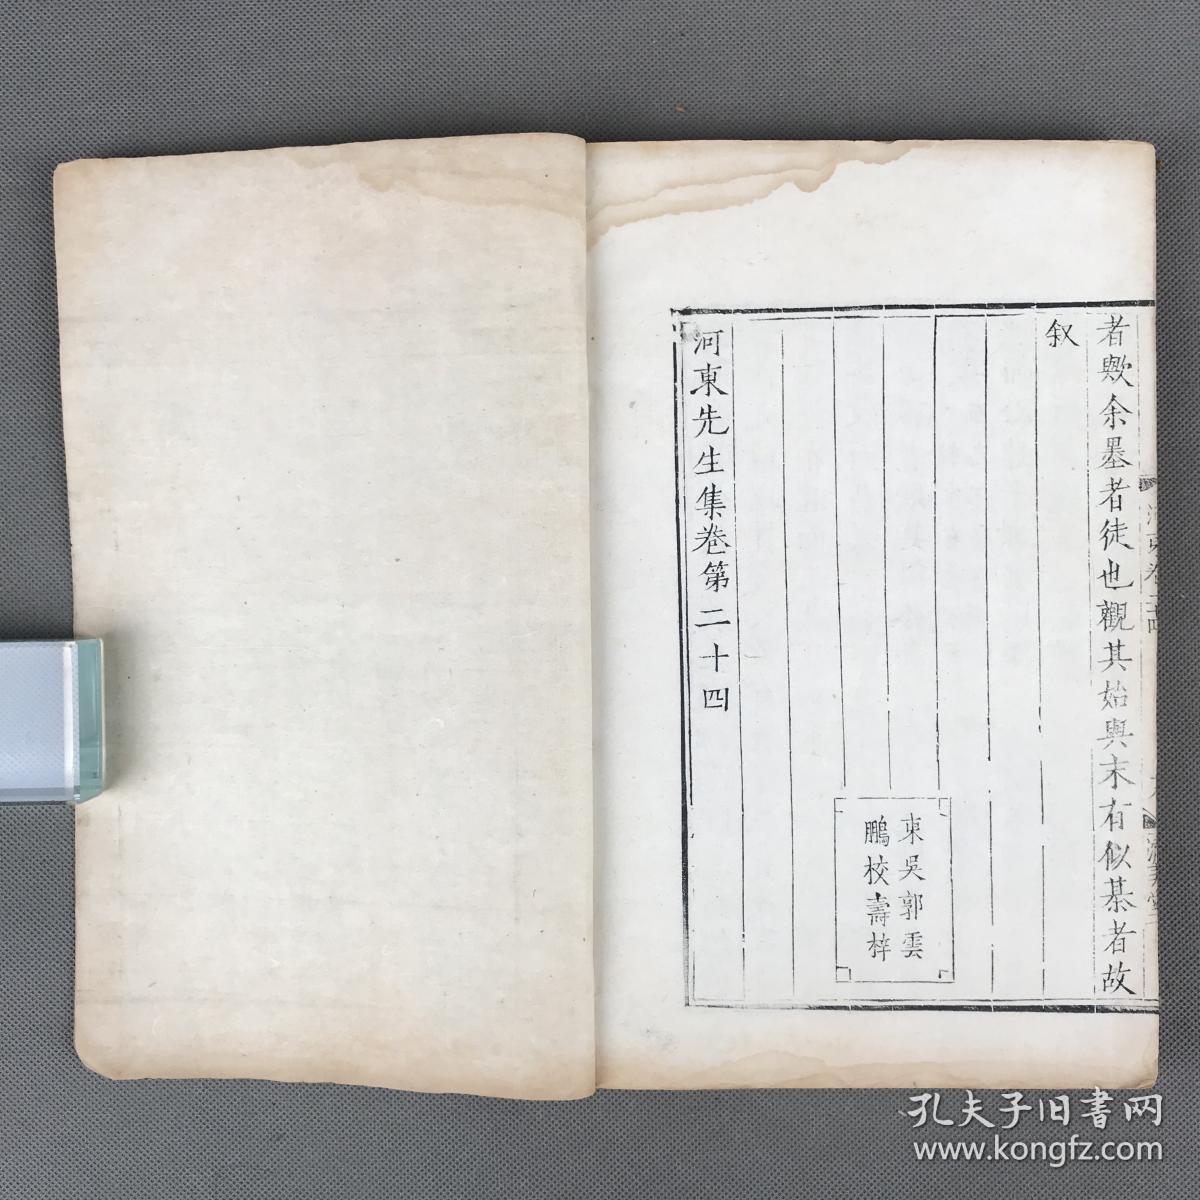 者歟余墨者徒也觀其始與末有似棊者故
叙
東吳郭雲
鵬校壽梓
河東先生集卷第二十四
孔夫子旧書网
www.kongfz.com